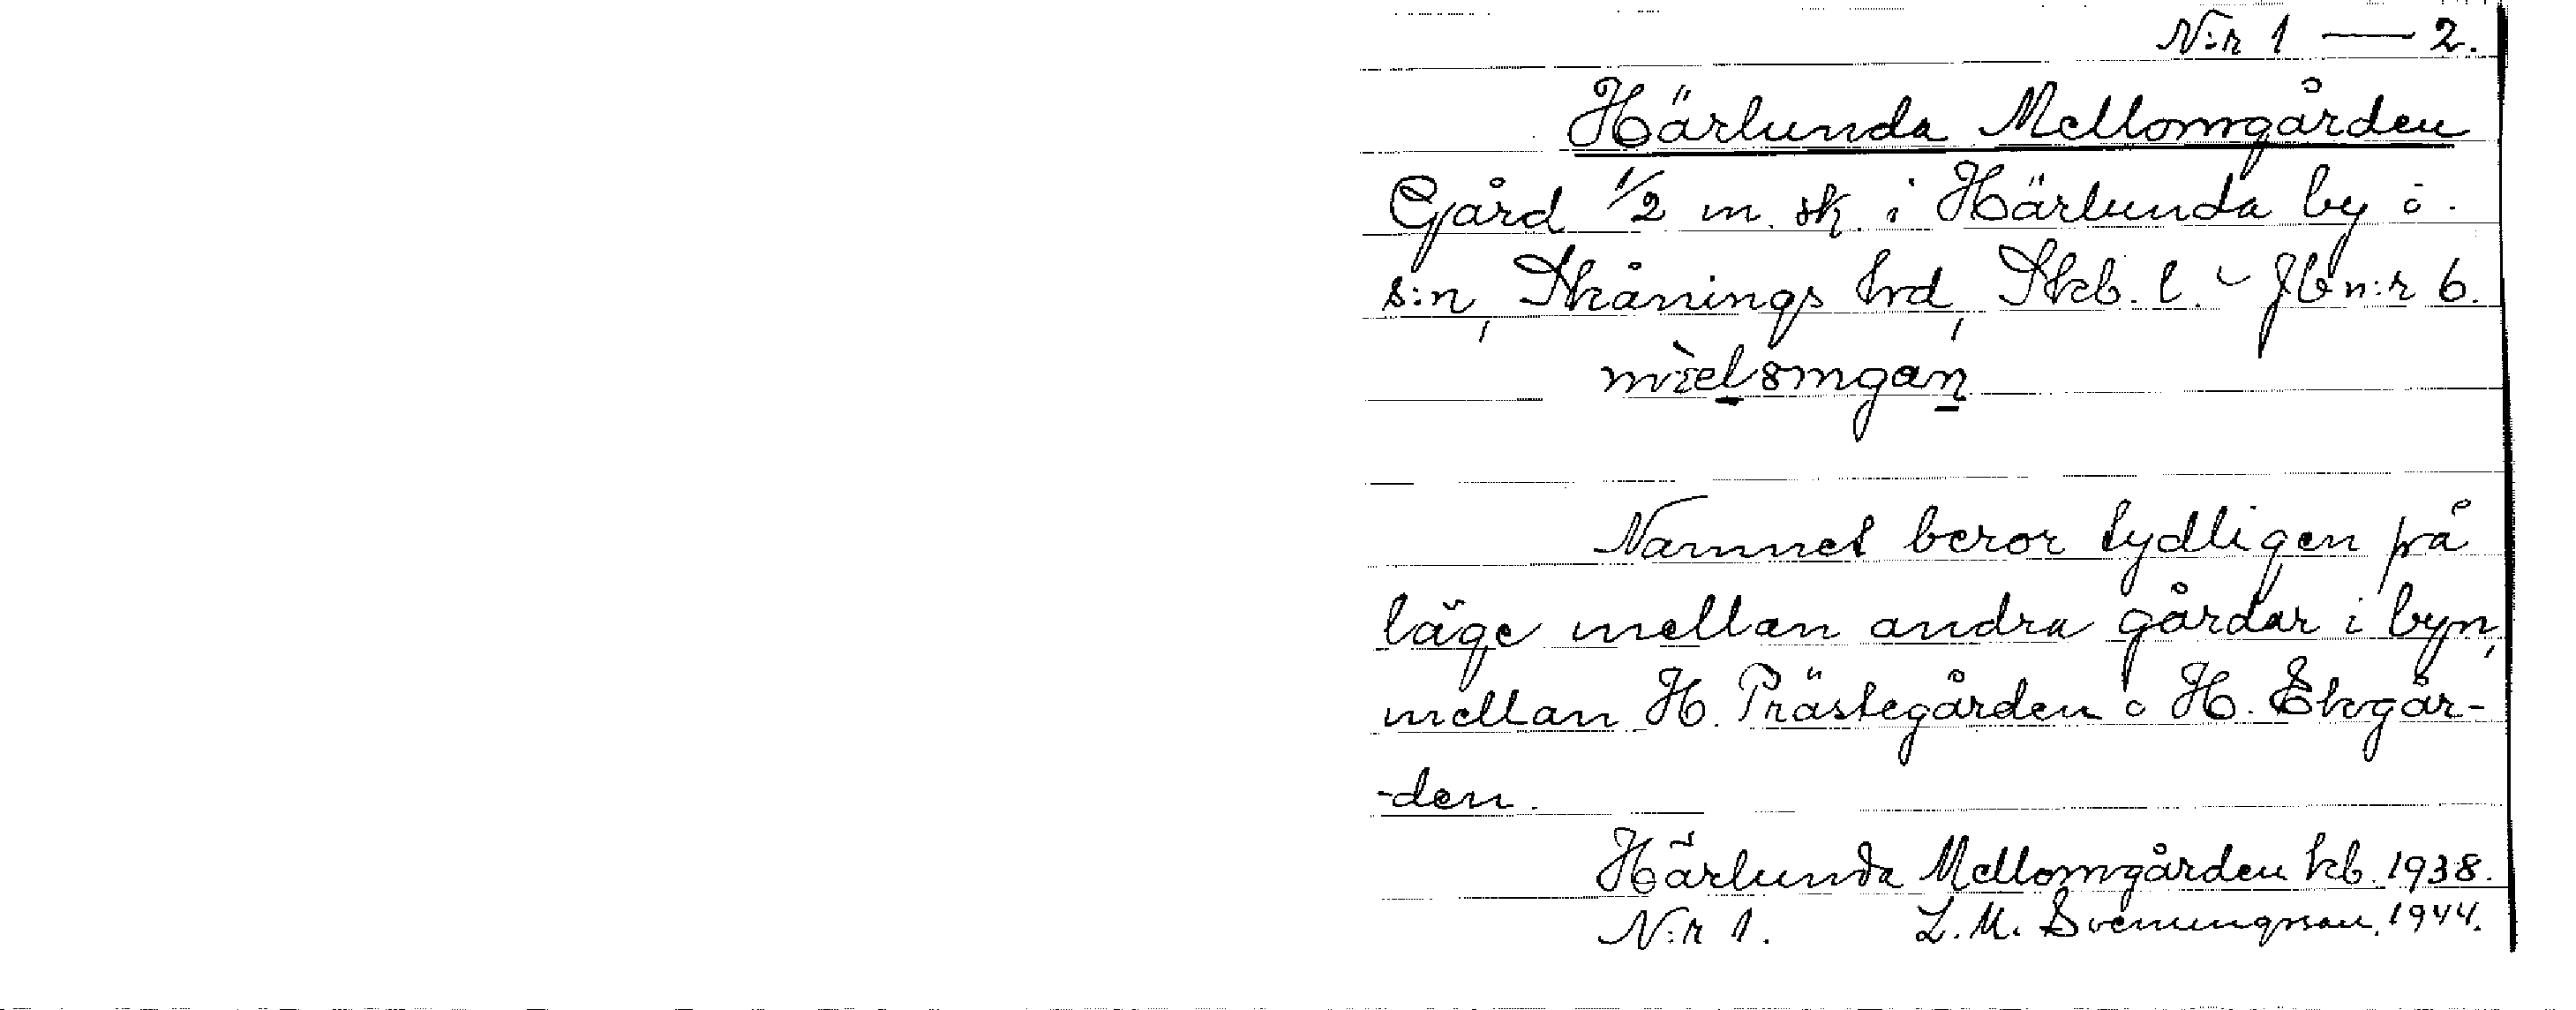 N:r 1 — 2.
Härlunda Mellomgården
Gård 1/2 m. sk. i Härlunda by o.
s:n, Skånings hrd, Skb. l. Jb n:r 6.
Namnet beror tydligen på
läge mellan andra gårdar i byn,
mellan H. Prästegården o H. Skogår-
-den.
Härlunda Mellomgården kb. 1938.
N:r 1. L. M. Svenungsson, 1944.